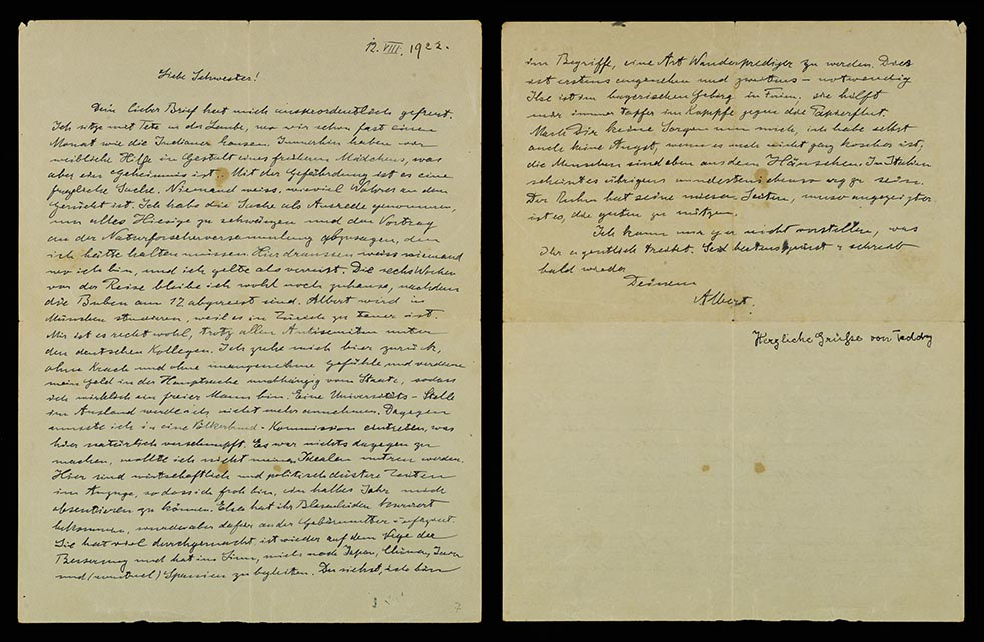 12. VIII. 1922.
Liebe Schwester!
Dein lieber Brief hat mich ausserordentlich gefreut.
Ich sitze mit Tete in der Laube, wo wir schon fast einen
Monat wie die Indianer hausen. Immerhin haben wir
weibliche Hilfe in Gestalt eines früheren Mädchens, was
aber ein Geheimnis ist. Mit der Gefährdung ist es eine
fragliche Sache. Niemand weiss, wieviel Wahres an dem
Gerücht ist. Ich habe die Sache als Ausrede genommen,
um alles Hiesige zu schwänzen und den Vortrag
an der Naturforscherversammlung abzusagen, den
ich hätte halten müssen. Hier draussen weiss niemand
wo ich bin, und ich gelte als verreist. Die sechs Wochen
vor der Reise bleibe ich wohl noch zuhause, nachdem
die Buben am 17 abgereist sind. Albert wird in
München studieren, weil es in Zürich zu teuer ist.
Mir ist es recht wohl, trotz allen Antisemiten unter
den deutschen Kollegen. Ich ziehe mich hier zurück,
ohne Krach und ohne unangenehme Gefühle und verdiene
mein Geld in der Hauptsache unabhängig vom Staate, sodass
ich wirklich ein freier Mann bin. Eine Universitäts-Stelle
im Ausland werde ich nicht mehr annehmen. Dagegen
musste ich in eine Völkerbund-Kommission eintreten, was
hier natürlich verschnupft. Es war nichts dagegen zu
machen, wollte ich nicht meinen Idealen untreu werden.
Hier sind wirtschaftlich und politisch düstere Zeiten
im Anzuge, sodass ich froh bin, ein halbes Jahr mich
absentieren zu können. Elsa hat ihr Blasenleiden kuriert
bekommen, wurde aber dafür an der Gebärmutter
Sie hat viel durchgemacht, ist wieder auf dem Wege der
Besserung und hat im Sinn, mich nach Japan, China, Java
und (eventuel) Spanien zu begleiten. Du siehst, ich bin
im Begriffe, eine Art Wanderprediger zu werden. Dies
ist erstens angenehm und zweitens – notwendig
Ilse ist im bayerischen Gebirg in Sie hilft
mir immer tapfer im Kampfe gegen die Papierflut.
Mach Dir keine Sorgen um mich, ich habe selbst
auch keine Angst, wenn es auch nicht ganz koscher ist;
die Menschen sind eben aus dem Häuschen. In Italien
scheint es übrigens mindestens ebenso arg zu sein.
Der hat seine miesen Seiten, umso angezeigter
ist es, die guten zu nützen.
Ich kann mir gar nicht vorstellen, was
Ihr eigentlich treibet. Sei bestens gegrüsst & schreib
bald wieder
Deinem
Albert.
Herzliche Grüsse von Teddy